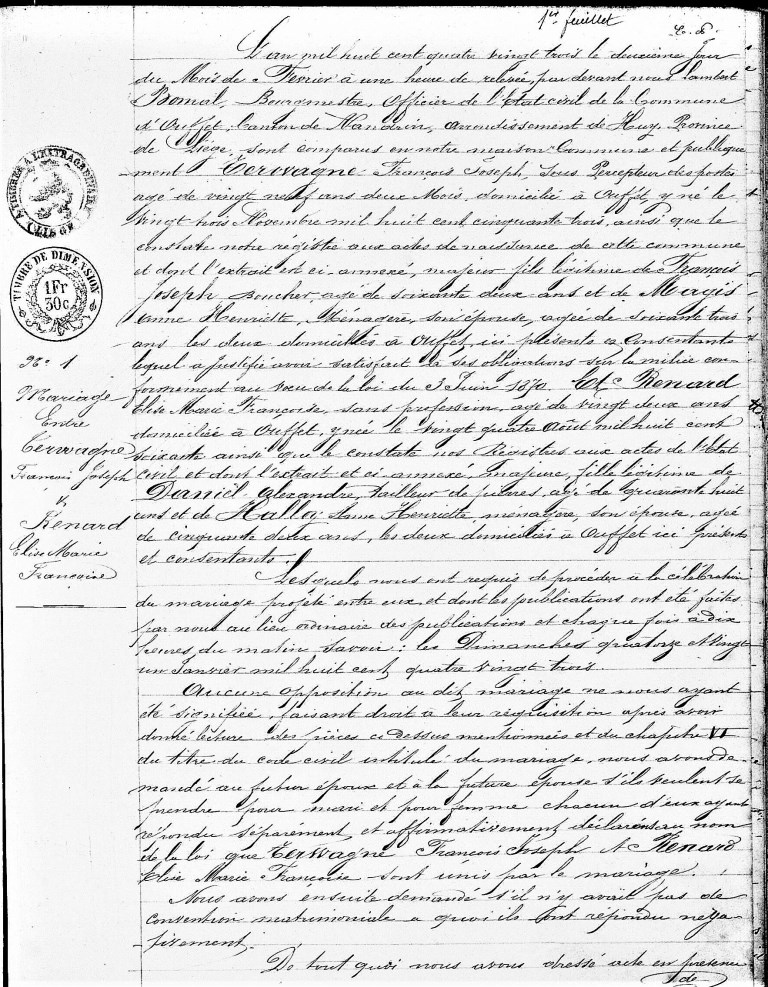 1er feuillet
L'an mil huit cent quatre vingt trois le deuxième jour
du Mois de Février à une heure de relevée, par devant nous Lambert
Bomal, Bourgmestre, Officier de l'Etat civil de la Commune
d'Ouffet, Canton de Nandrin, arrondissement de Huy, Province
de Liège, sont comparus en notre maison Commune et publique
ment Terwagne François Joseph, Sous Percepteur des postes
agé de vingt neuf ans deux Mois, domicilié à Ouffet, y né le
vingt trois Novembre mil huit cent cinquante trois, ainsi que le
constate notre registre aux actes de naissance de cette commune
et dont l'extrait est ci-annexé, majeur fils légitime de François
Joseph, Boucher, agé de soixante deux ans et de Magis
Anne Henriette, Ménagère, son épouse, agée de soixante trois
ans les deux domiciliés à Ouffet, ici présents & Consentants
lequel a justifié avoir satisfait à ses obligations sur la milice con-
formément au vœu de la loi du 3 Juin 1870. Et Renard
Elise Marie Françoise, sans profession, agé de vingt deux ans
domiciliée à Ouffet, y née le vingt quatre Août mil huit cent
soixante ainsi que le constate nos Régistres aux actes de l'Etat
civil et dont l'extrait et ci-annexé, majeure, fille légitime de
Daniel Alexandre, tailleur de pierres, agé de quarante huit
ans et de Halloy Anne Henriette, ménagère, son épouse, agée
de cinquante deux ans, les deux domiciliés à Ouffet ici présents
et consentants.
Lesquels nous ont requis de procéder à la célébration
du mariage projeté entre eux et dont les publications ont été faites
par nous au lieu ordinaire des publications et chaque fois à dix
heures du matin savoir : les Dimanches quatorze et vingt
un Janvier mil huit cent quatre vingt trois.
Aucune opposition au dit mariage ne nous ayant
été signifiée, faisant droit à leur réquisition après avoir
donné lecture des pièces ci dessus mentionnées et du chapitre VI
du titre du code civil intitulé du mariage, nous avons de-
mandé au futur époux et à la future épouse s'ils veulent se
prendre pour mari et pour femme chacun d'eux ayant
répondu séparément et affirmativement déclarons au nom
de la loi que Terwagne François Joseph et Renard
Elise Marie Françoise sont unis par le mariage.
Nous avons ensuite demandé s'il n'y avait pas de
convention matrimoniale à quoi ils ont répondu néga-
tivement.
De tout quoi nous avons dressé acte en présence
de
TIMBRE DE DIMENSION
1Fr
30c
No 1
Mariage
Entre
Terwagne
François Joseph
&
Renard
Elise Marie
Françoise